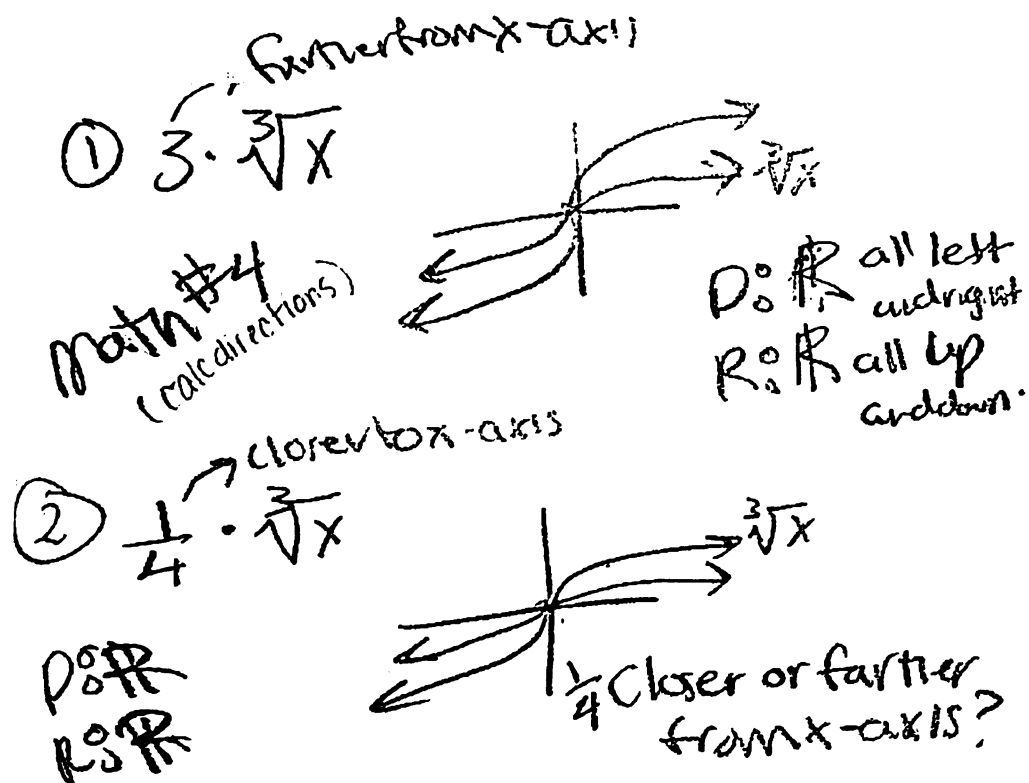 farther from x-axis
① 3 · ∛x
∛x
math #4
(calc directions)
D: ℝ all left
and right
R: ℝ all up
and down.
closer to x-axis
② 1/4 · ∛x
∛x
D: ℝ
R: ℝ
1/4 Closer or farther
from x-axis?